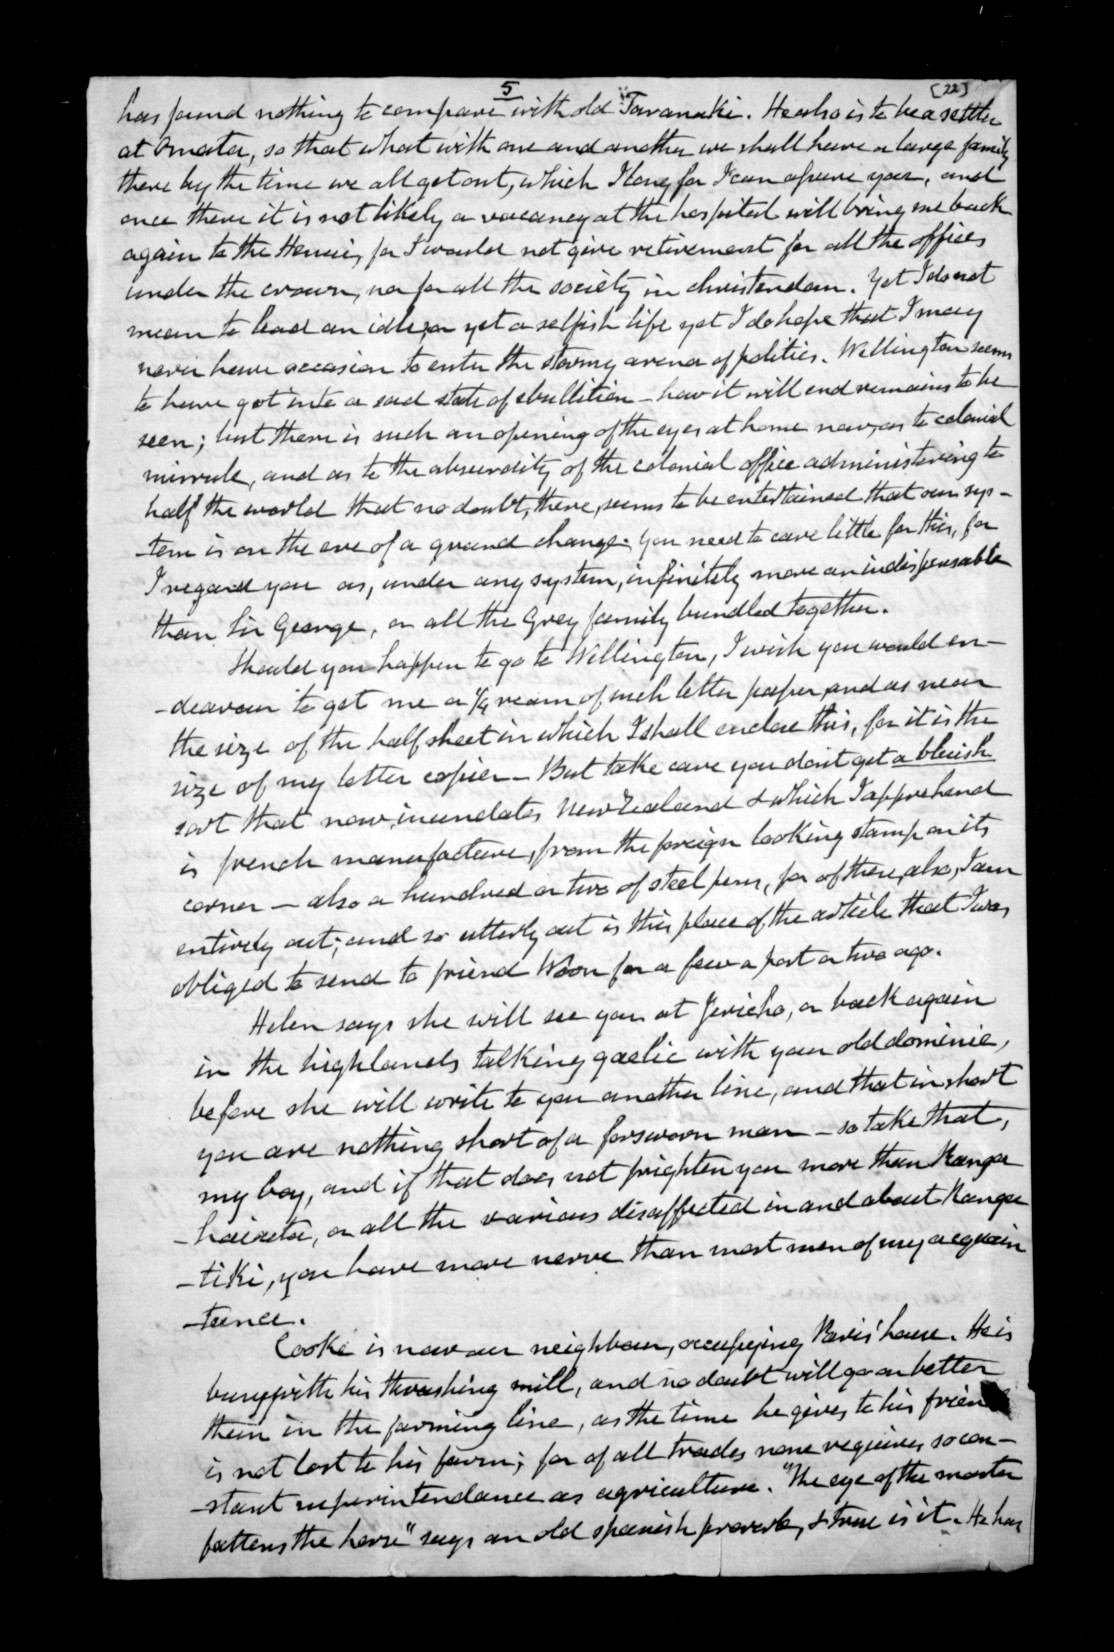 5
[22]
has found nothing to compare with old Taranaki. He also is to be a settler
at Omata, so that what with one and another we shall have a large family
there by the time we all get out, which I long for I can assure you, and
once there it is not likely a vacancy at the hospital will bring me back
again to the Henui, for I would not give retirement for all the offices
under the crown, nor for all the society in christendom. Yet I do not
mean to lead an idle, or yet a selfish life yet I do hope that I may
never have occasion to enter the stormy arena of politics. Wellington seems
to have got into a sad state of ebullition – how it will end remains to be
seen; but there is such an opening of the eyes at home now, as to colonial
misrule, and as to the absurdity of the colonial office administering to
half the world that no doubt, there, seems to be entertained that our sys-
-tem is on the eve of a grand change. You need to care little for this, for
I regard you as, under any system, infinitely more an indispensable
than Sir George, or all the Grey family bundled together.
Should you happen to go to Wellington, I wish you would en-
-deavour to get me a 1/4 ream of such letter paper, and as near
the size of the half sheet in which I shall enclose this, for it is the
size of my letter copier – But take care you don't get a bluish
sort that now inundates New Zealand & which I apprehend
is french manufacture, from the foreign looking stamp on its
corner – also a hundred or two of steel pens, for of these, also, I am
entirely out; and so utterly out is this place of the article that I was
obliged to send to friend Woon for a few a post or two ago.
Helen says she will see you at Jericho, or back again
in the highlands talking gaelic with your old dominie,
before she will write to you another line, and that in short
you are nothing short of a forsworn man – so take that,
my boy, and if that does not frighten you more than Ranga
-haiata, or all the various disaffected in and about Ranga
-tiki, you have more nerve than most men of my acquain
-tance.
Cooke is now our neighbour, occupying Davis' house. He is
busy with his thrashing mill, and no doubt will go on better
then in the farming line, as the time he gives to his friends
is not lost to his farm; for of all trades none requires so con-
-stant superintendance as agriculture. "The eye of the master
fattens the horse" says an old spanish proverb, & true is it. He has